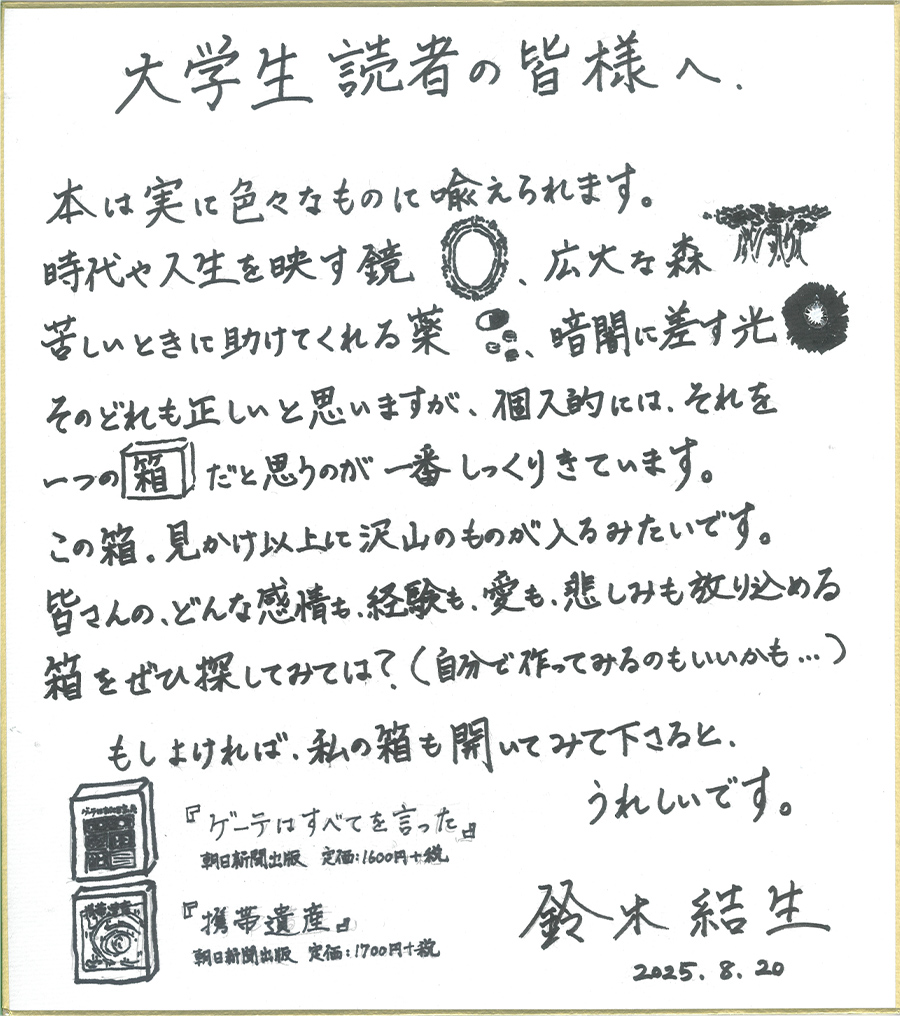 大学生読者の皆様へ.
本は実に色々なものに喩えられます。
時代や人生を映す鏡、広大な森
苦しいときに助けてくれる薬、暗闇に差す光
そのどれも正しいと思いますが、個人的には、それを
一つの箱だと思うのが一番しっくりきています。
この箱。見かけ以上に沢山のものが入るみたいです。
皆さんの、どんな感情も、経験も、愛も、悲しみも放り込める
箱をぜひ探してみては?(自分で作ってみるのもいいかも…)
もしよければ、私の箱も開いてみて下さると、
うれしいです。
『ゲーテはすべてを言った』
朝日新聞出版 定価:1600円+税
『携帯遺産』
朝日新聞出版 定価:1700円+税
鈴木結生
2025.8.20